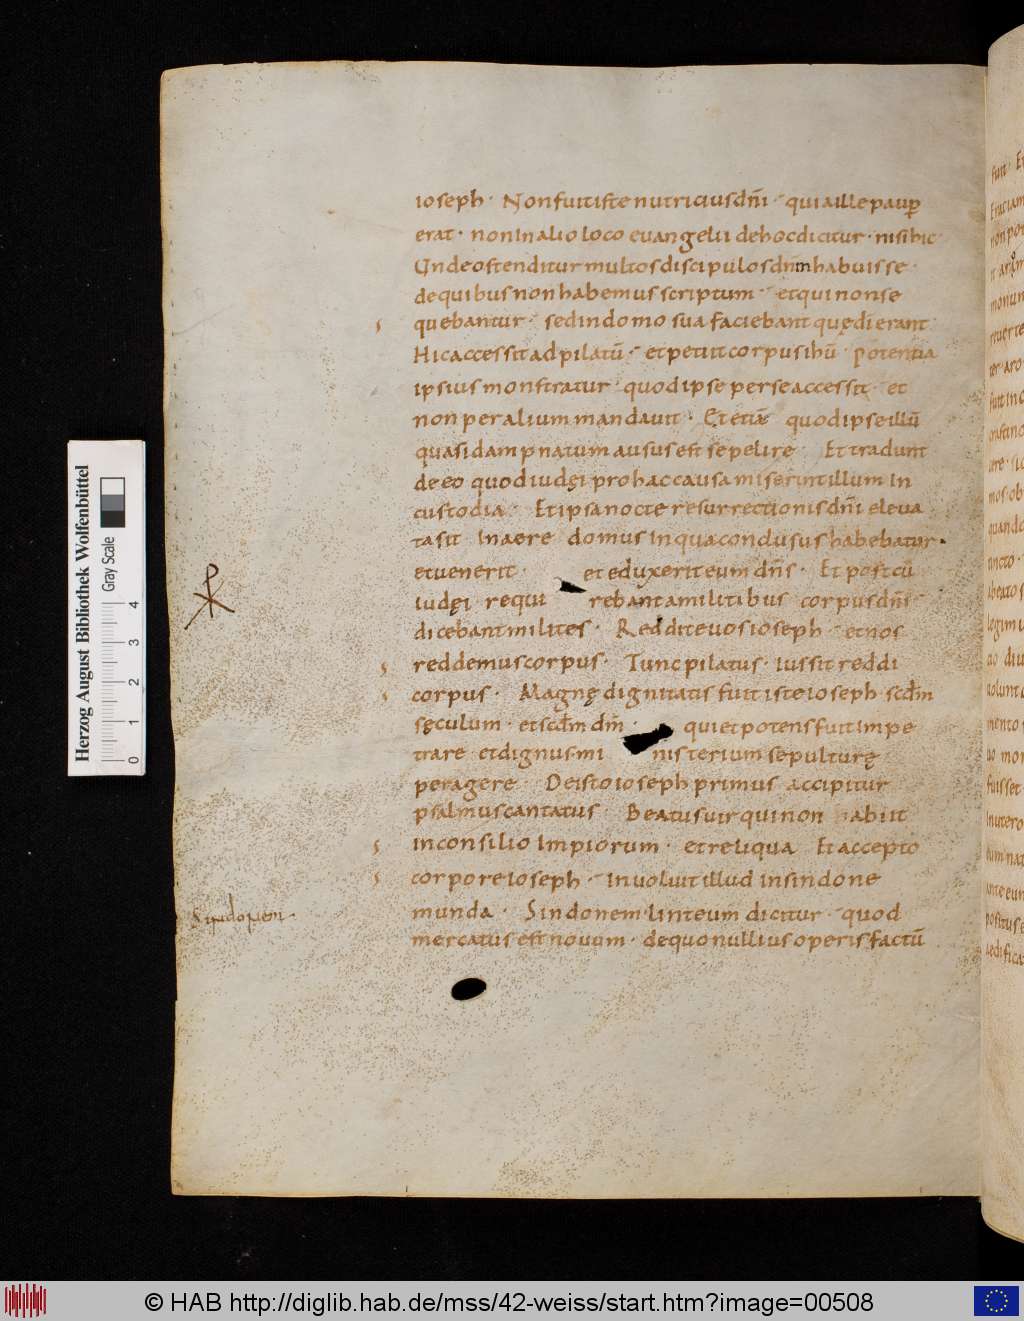 ioseph · Non fuit iste nutricius dn̄i · quia ille paup̲
erat · non in alio loco evangelii de hoc dicitur · nisi hic
Unde ostenditur multos discipulos dn̄m habuisse ·
de quibus non habemus scriptum · et qui non se
quebantur · sed in domo sua faciebant quę di erant
Hic accessit ad pilatū · et petiit corpus ihū · potentia
ipsius monstratur · quod ipse per se accessit · et
non per alium mandavit · Et etiā quod ipse illū
quasi dampnatum ausus est sepelire · Et tradunt
de eo quod iudęi pro hac causa miserint illum in
custodia · Et ipsa nocte resurrectionis dn̄i eleva
ta sit in aere domus in qua conclusus habebatur ·
et venerit · et eduxerit eum dn̄s · Et postcū
iudęi requirebant a militibus corpus dn̄i
dicebant milites · Reddite vos ioseph · et nos
reddemus corpus · Tunc pilatus · iussit reddi
corpus · Magnę dignitatis fuit iste ioseph · scd̄m
sęculum · et scd̄m dm̄ · qui et potens fuit impe
trare · et dignus mi nisterium sepulturę
peragere · De isto ioseph primus accipitur
psalmus cantatus · Beatus vir qui non abiit
in consilio impiorum · et reliqua Et accepto
corpore ioseph · involvit illud in sindone
Sindonem ·
munda · Sindonem · linteum dicitur · quod
mercatus est novum · de quo nullius operis factū
Herzog August Bibliothek Wolfenbüttel
Gray Scale
0 1 2 3 4
© HAB http://diglib.hab.de/mss/42-weiss/start.htm?image=00508